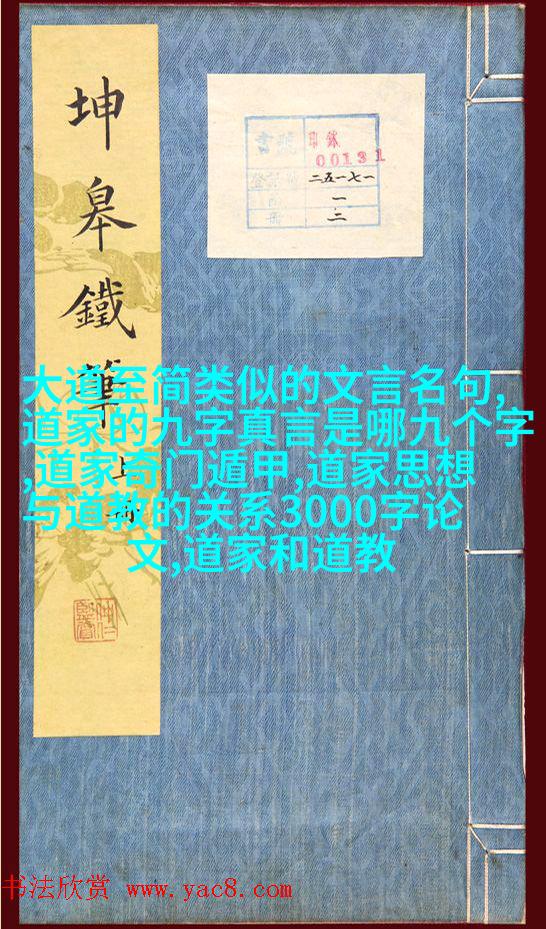 坤皋鐵筆
上冊
書號
印 鉥
00131
二五一七一
一
二
大道至简类似的文言名句,
道家的九字真言是哪九个字
,道家奇门遁甲,道家思想
与道教的关系3000字论
文,道家和道教
书法欣赏 www.yac8.com